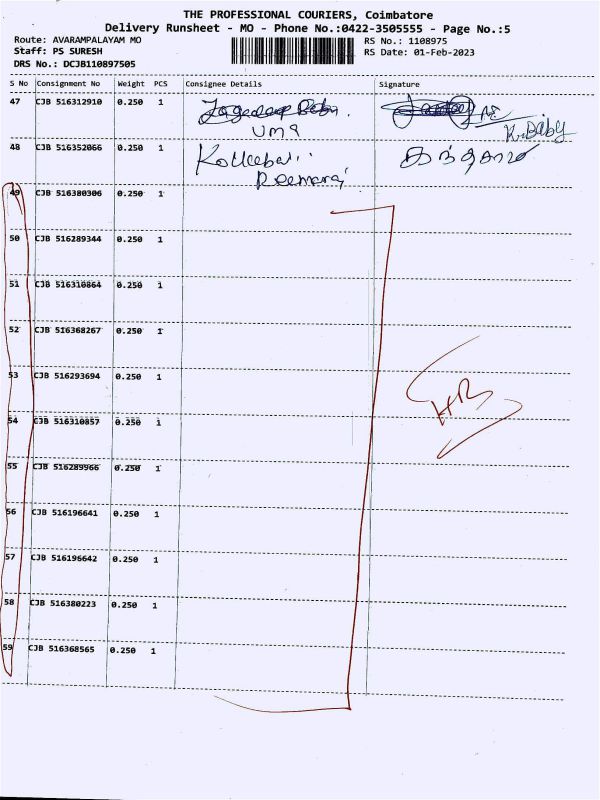 THE PROFESSIONAL COURIERS, Coimbatore
Delivery Runsheet - MO - Phone No.:0422-3505555 - Page No.:5
Route: AVARAMPALAYAM MO
Staff: PS SURESH
DRS No.: DCJB110897505
RS No.: 1108975
RS Date: 01-Feb-2023
S No Consignment No Weight PCS Consignee Details Signature
47 CJB 516312910 0.250 1
UMA
K.Baby
48 CJB 516352066 0.250 1
49 CJB 516380306 0.250 1
50 CJB 516289344 0.250 1
51 CJB 516310864 0.250 1
52 CJB 516368267 0.250 1
53 CJB 516293694 0.250 1
54 CJB 516310857 0.250 1
55 CJB 516289966 0.250 1
56 CJB 516196641 0.250 1
57 CJB 516196642 0.250 1
58 CJB 516380223 0.250 1
59 CJB 516368565 0.250 1